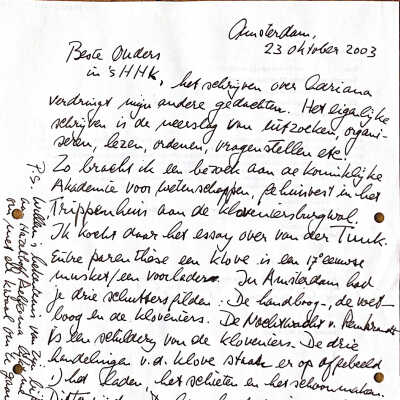 Amsterdam,
23 oktober 2003
Beste Ouders
in 's HHK,
het schrijven over Adriana
verdringt mijn andere gedachten. Het eigenlijke
schrijven is de neerslag van uitzoeken, organi-
seren, lezen, ordenen, vragenstellen etc.
Zo bracht ik een bezoek aan de koninklijke
Akademie voor wetenschappen, gehuisvest in het
Trippenhuis aan de kloveniersburgwal.
Ik kocht daar het essay over van der Tuuk.
Entre parenthèse een klove is een 17e eeuwse
musket/een voorlader. In Amsterdam had
je drie schuttersgilden: De handboog-, de voet-
boog en de kloveniers. De Nachtwacht v. Rembrandt
is een schilderij van de kloveniers. De drie
handelingen v.d. klove staan er op afgebeeld
:) het laden, het schieten en het schoonmaken.
P.S. Willem's